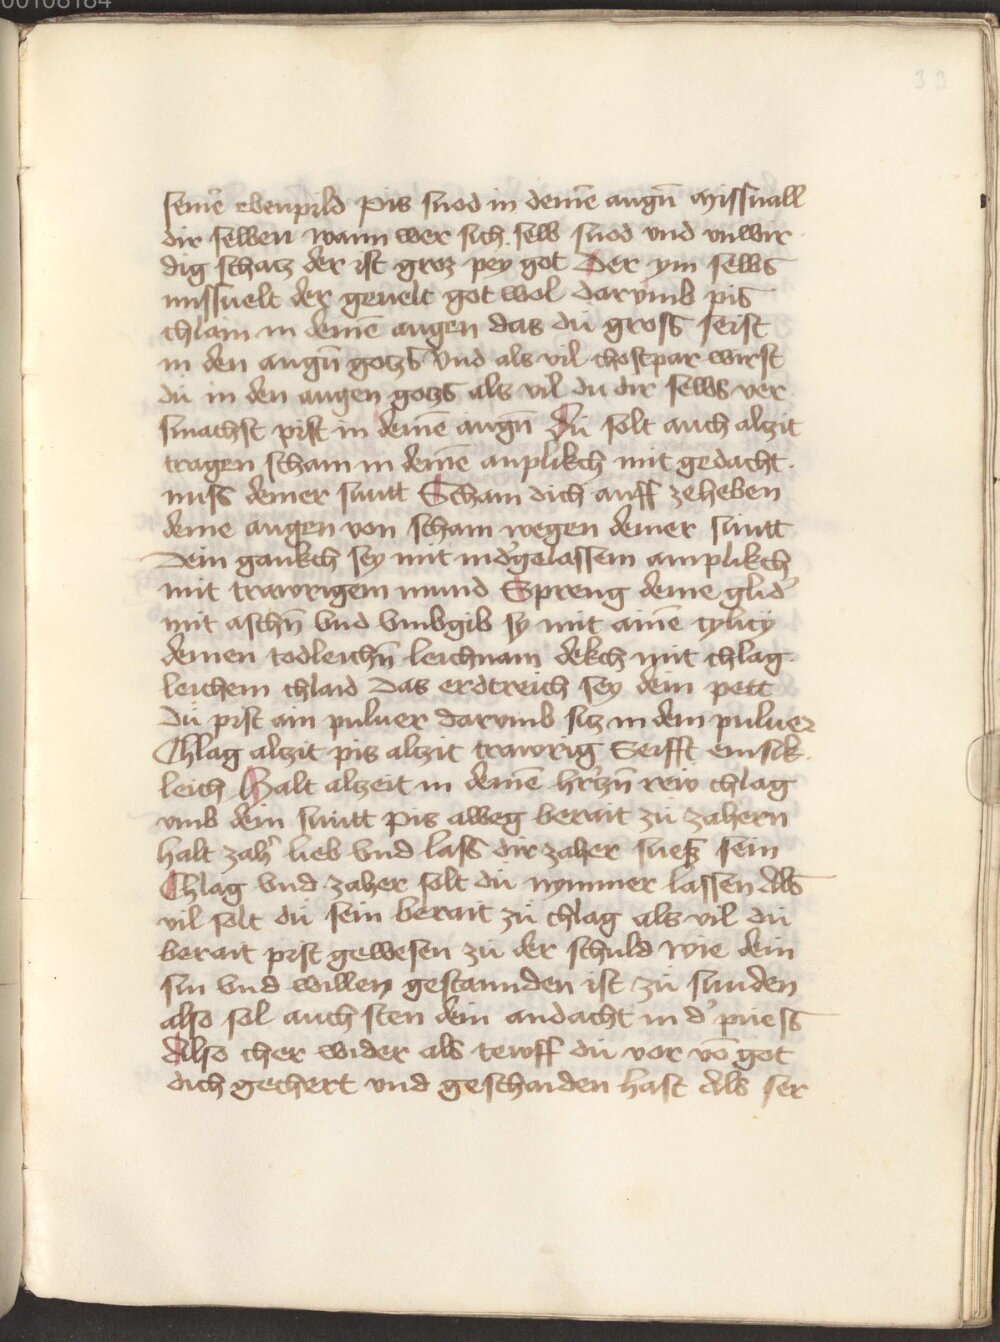 00108184
39
seinē ebenpild Pis snod in deinē augn̄ Missuall
dir selben wann wer sich selb snod vnd vnwir
dig schacz der ist groz pey got Der ym selbs
missuelt der geuelt got wol darvmb pis
chlain in deinē augen das du gross seist
in den augn̄ gotzs vnd als vil chostpar wirst
du in den augen gotzs als vil du dir selbs ver
smachst pist in deinē augn̄ Du solt auch alczit
tragen scham in deinē anplikch mit gedacht
nuss deiner sunt Scham dich auff zeheben
deine augen von scham wegen deiner sunt
Dein gankch sey mit nid'gelassem anplikch
mit trawrigem mund Spreng deine glid'
mit aschn̄ vnd vmbgib sy mit ainē cyliciy
deinen todleichn̄ leichnam dekch mit chlag
leichem chlaid Das erdtreich sey dein pett
Du pist ain puluer darvmb sicz in dem puluer
Chlag alczit pis alczit trawrig Seifft emsik
leich Halt alczeit in deinē hrczn̄ rew chlag
vmb dein sunt Pis albeg berait zu zahern
halt zah' lieb vnd lass dir zaher suess sein
Chlag vnd zaher solt du nymmer lassen Als
vil solt du sein berait zu chlag als vil du
berait pist gewesen zu der schuld Wie dein
sin vnd willen gestannden ist zu sunden
also sol auch sten dein andacht in d' puess
Also cher wider als tewff du vor vō got
dich gechert vnd geschaiden hast Als ser